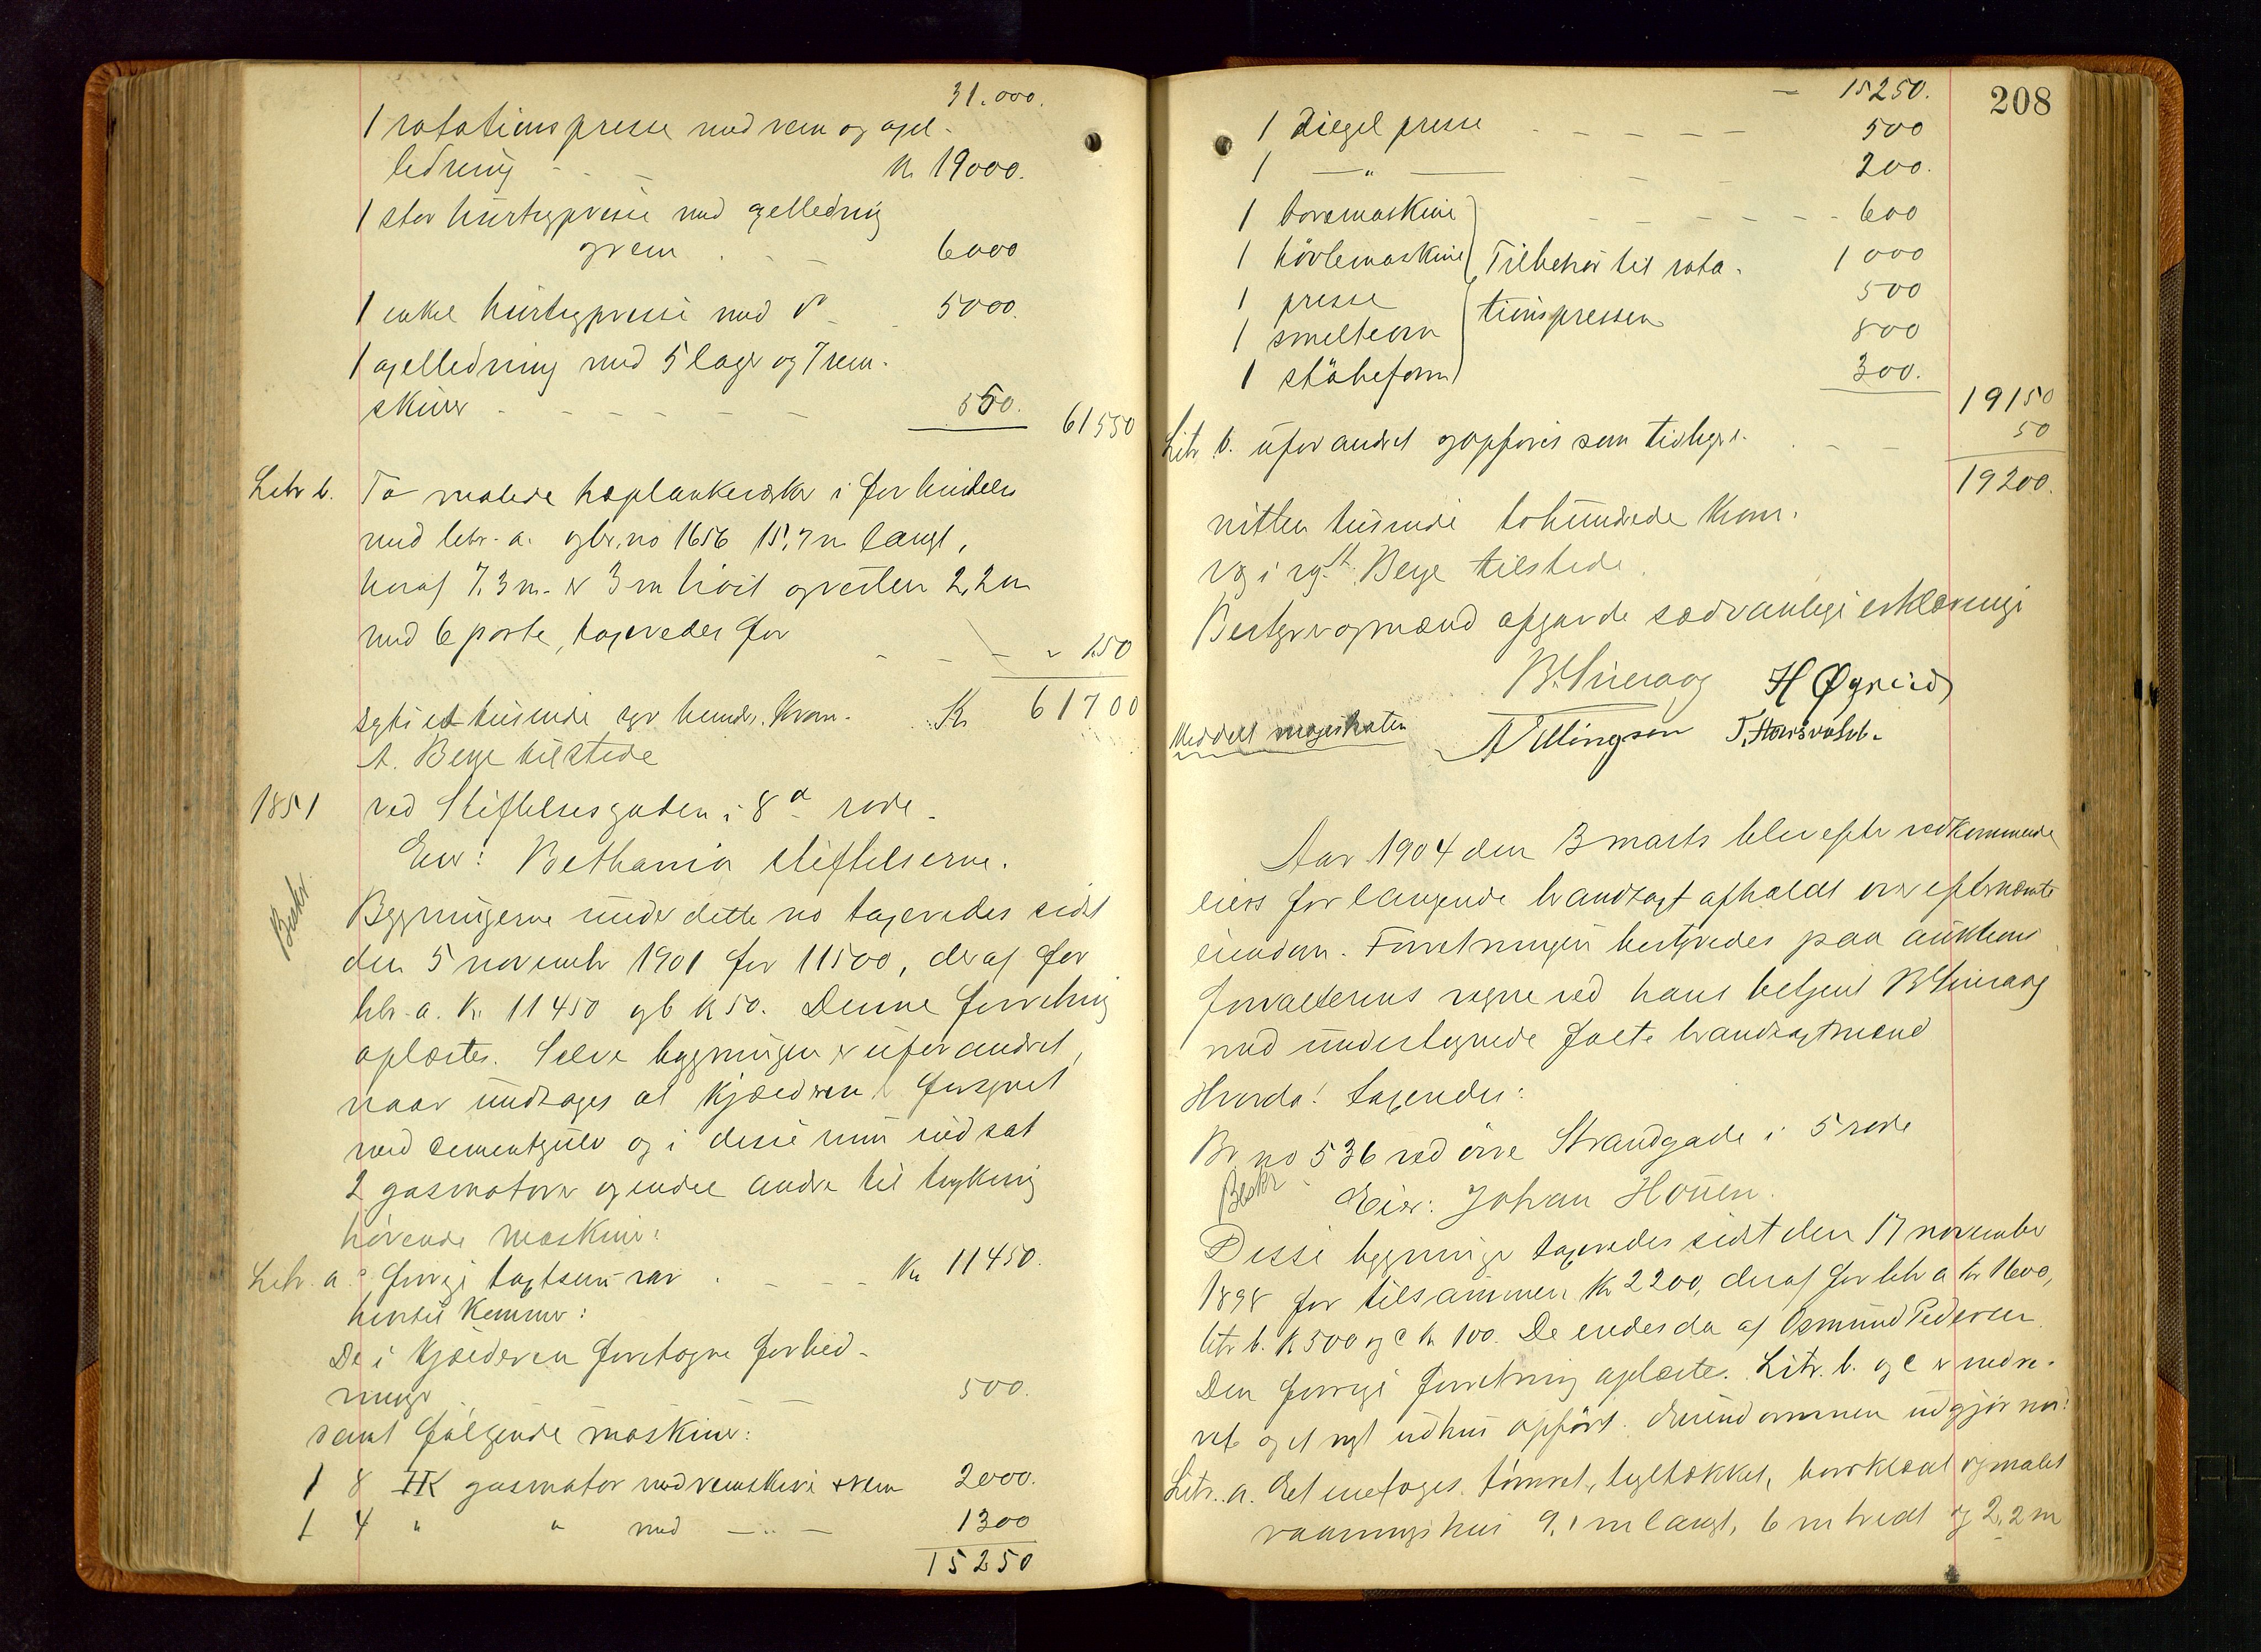 31.000.
1 rotationspresse med rem og axel-
ledning - - - Kr 19000.
1 stor hurtigpresse med axelledning
og rem . - - 6000
1 enkel hurtigpresse med do - - 5000.
1 axelledning med 5 lager og 7 rem-
skiver - - - - - - 550. 61550
Litr b. To malede høplankeræker i forbindelse
med litr. a. og br. no 1656 15,7 m langt,
hvoraf 7,3 m. er 3 m høit og resten 2,2 m
med 6 porte, taxeredes for - - - " 150
sexti et tusinde syv hundr. Kron. Kr 61700
A. Berge tilstede
1851 ved Stiftelsesgaden i 8de rode.
Eier: Bethania stiftelserne.
Beskr.
Bygningerne under dette no taxeredes sidst
den 5 novembr 1901 for 11500, deraf for
litr. a. Kr. 11450 og b Kr 50. Denne forretning
oplæstes. Selve bygningen er uforandret,
naar undtages at kjælderen er forsynet
med cementgulv og i disse rum indsat
2 gasmotorer og endel andre til trykning
hørende maskiner:
Litr. a. forrige taxtsum var . - - - Kr 11450.
hertil kommer:
De i kjælderen foretagne forbed-
ringer - - 500.
samt følgende maskiner:
1 8 HK gasmotor med remskive & rem 2000.
1 4 " " med - " - 1300
15250
208
- 15250.
1 Diegel presse - - - - - 500
1 - " - - - 200.
1 boremaskine - - - - - - 600
1 høvlemaskine Tilbehør til rota- 1000
1 presse tionspressen 500
1 smelteovn 800
1 støbeform 300.
19150
Litr. b. uforandret og opføres som tidligere. - - 50
19200.
nitten tusinde tohundrede Kron.
A. Berge tilstede.
Bestyrer og mænd afgavde sædvanlige erklæringe
H Øgreid
Meddelt magistraten A Ellingsen
Aar 1904 den 3 marts blev efter vedkommende
eiers forlangende brandtaxt afholdt over efternævnte
eiendom. Forretningen bestyredes paa auktions
forvalterens vegne ved hans betjent
med undertegnede faste brandtaxtmænd
Hvorda! taxeredes:
Br no 536 ved øvre Strandgade i 5 rode
Beskr Eier: Johan Houen.
Disse bygninger taxeredes sidst den 17 november
1898 for tilsammen Kr 2200, deraf for litr a kr 1600,
litr b. Kr 500 og c Kr 100. De eiedes da af Osmund Pedersen.
Den forrige forretning oplæstes. Litr. b. og c er nedre-
vet og et nyt udhus opført. Eiendommen udgjør nu:
Litr. a. Et enetages. tømret, tegltækket, bordklædt og malet
vaaningshus 9,1 m langt, 6 m bredt og 2,2 m